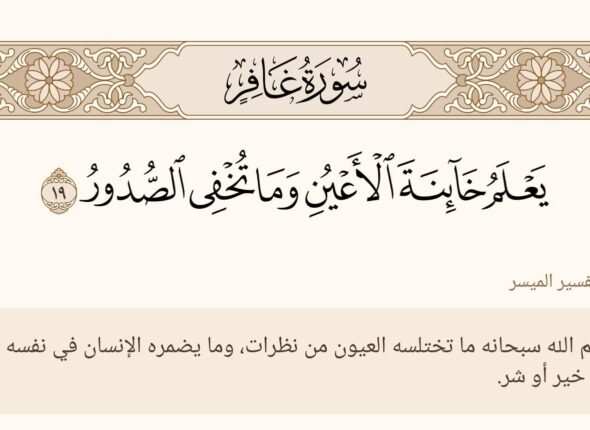 سُورَةُ غَافِرٍ
يَعْلَمُ خَآئِنَةَ ٱلْأَعْيُنِ وَمَا تُخْفِى ٱلصُّدُورُ ١٩
فسير الميسر
م الله سبحانه ما تختلسه العيون من نظرات، وما يضمره الإنسان في نفسه
خير أو شر.